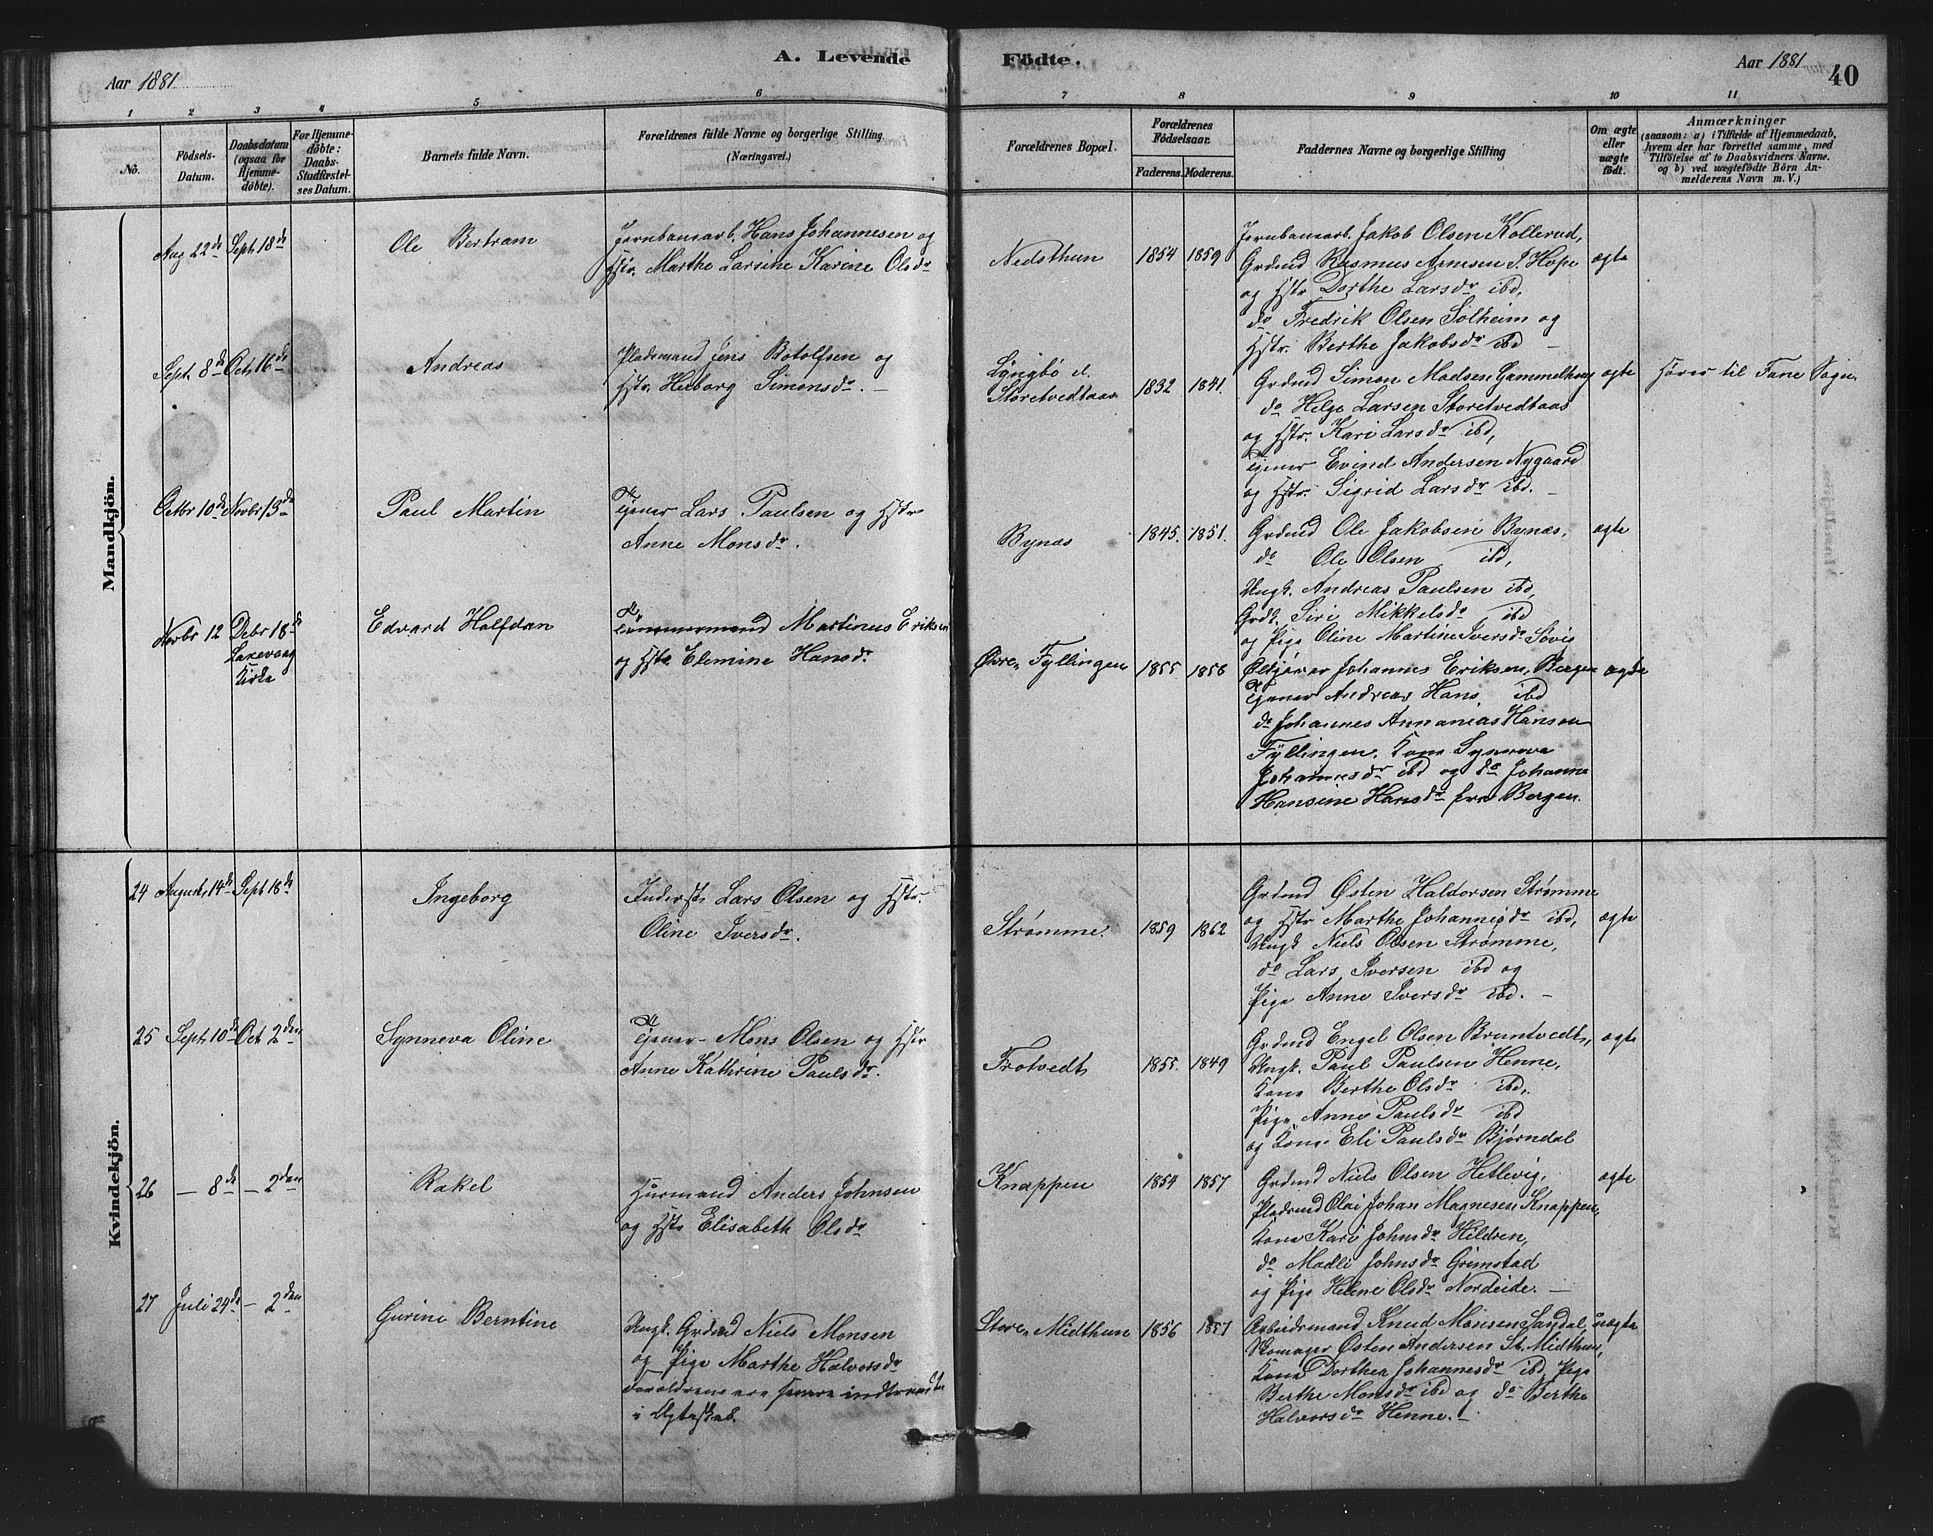 A. Levende Födte.
Aar 1881
Aar 1881
40
1 2 3 4 5 6 7 8 9 10 11
No.
Födsels-Datum.
Daabsdatum (ogsaa for Hjemmedøbte).
For Hjemmedøbte: Daabs-Stadfæstelses Datum.
Barnets fulde Navn.
Forældrenes fulde Navne og borgerlige Stilling. (Næringsvei.)
Forældrenes Bopæl.
Forældrenes Födselsaar.
Faderens. Moderens.
Faddernes Navne og borgerlige Stilling
Om ægte eller uægte födt.
Anmærkninger
(saasom: a) i Tilfælde af Hjemmedaab, hvem der har forrettet samme, med Tilföielse af to Daabsvidners Navne. og b) ved uægtefödte Börn Anmelderens Navn m. V.)
Mandkjön.
Aug 22de Sept. 18de
Ole Bertram
Jernbanearb. Hans Johannesen og
Hstr. Marthe Larsine Karine Olsdr
Nedsthun
1854 1859
Jernbanearb. Jakob Olsen Kollerud,
Grdmd Rasmus Arnesen S. Hope
og Hstr Dorthe Larsdr ibd,
do Fredrik Olsen Solheim og
Hstr. Berthe Jakobsdr ibd
ægte
Sept. 8de Octr 16de
Andreas
Pladsmand Jens Botolfsen og
Hstr. Herborg Simonsdr. —
Lyngbö
Storetvedtaas
1832 1841.
Grdmd Simon Madsen Gammelhaug
do Helge Larsen Storetvedtaas
og Hstr. Kari Larsdr ibd,
Tjener Evind Andersen Nygaard
og Hstr. Sigrid Larsdr ibd. —
ægte
Hører til Fane Sogn.
Octbr 10de Novbr 13de
Paul Martin
Tjener Lars Paulsen og Hstr
Anne Monsdr.
Bynæs
1845. 1851.
Grdmd Ole Jakobsen Bynæs,
do Ole Olsen ibd,
Ungk. Andreas Paulsen ibd,
Grdk. Siri Mikkelsdr ibd
og Pige Oline Martine Iversdr Søvig
ægte
Novbr 12 Debr 18de
Laxevaag
Kirke
Edvard Halfdan
Tömmermand Martinus Eriksen
og Hstr. Elemine Hansdr.
Øvre Fyllingen
1855 1858
Johannes Eriksen, Bergen
Tjener Andreas Hans. ibd
do Johannes Annanias Hansen
Fyllingen, Kone Synneva
Johannesdr ibd og do Johanne
Hansine Hansdr fra Bergen.
ægte
Kvindekjön.
24 August 14de Sept 18de
Ingeborg
Inderst Lars Olsen og Hstr.
Oline Iversdr.
Strømme.
1859 1862
Grdmd Østen Haldorsen Strømme
og Hstr Marthe Johannesdr ibd,
Ungk Niels Olsen Strømme,
do Lars Iversen ibd og
Pige Anne Iversdr ibd. —
ægte
25 Sept. 10de Oct 2den
Synneva Oline
Tjener Mons Olsen og Hstr
Anne Kathrine Paulsdr.
Frotvedt
1855. 1849
Grdmd Engel Olsen Bruntvedt,
Ungk. Paul Paulsen Henne,
Kone Berthe Olsdr ibd,
Pige Anne Paulsdr ibd
og Kone Eli Paulsdr Bjørndal
ægte
26 — 8de — 2den
Rakel
Husmand Anders Johnsen
og Hstr Elisabeth Olsdr
Knappen
1854 1857
Grdmd Niels Olsen Hetlevig,
Pladsmd Olai Johan Magnesen Knappen,
Kone Kari Johnsdr Hildren,
do Madli Johnsdr Grimstad
og Pige Helene Olsdr Nordeide. —
ægte
27 Juli 24de — 2den
Gurine Berntine
Ungk. Grdmd Niels Monsen
og Pige Marthe Halvorsdr
Forældrene ere senere indtraadte
i Ægteskab.
Store Midthun
1856 1857
Arbeidsmand Knud Monsen Sandal,
Skomager Østen Andersen St. Midthun,
Kone Dorthea Johannesdr ibd, Pige
Berthe Monsdr ibd og do Berthe
Halvorsdr Henne. —
uægte